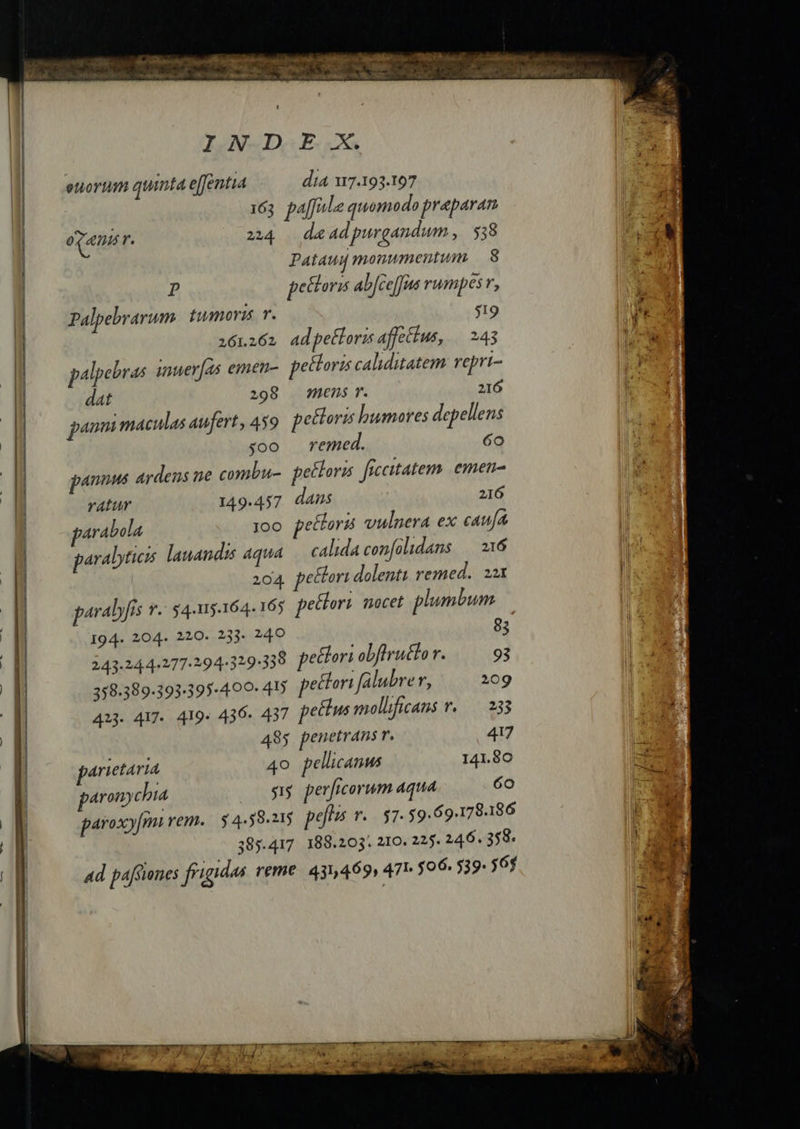 INDEX.
euorum quinta eſſentia
163
oꝫænis r. 224
P
Palpebrarum tumoris r.
261.262
palpebras inuerſas emen-
dat 298
panni maculas aufert, 459
500
pannus ardens ne combu-
ratur 149.457
parabola 100
paralyticis lauandis aqua
204
paralyſis r. 54.115.164.165
194. 204. 220. 233. 240
243.244.277.294.329.338
358.389.393.395.400.415
423. 417. 419. 436. 437
485
parietaria 40
paronychia 515
paroxyſmi rem. 54.58.215
385.417
ad paſsiones frigidas reme
dia 117.193.197
paſſulæ quomodo præparan
dæ ad purgandum, 538
Patauij monumentum 8
pectoris abſceſſus rumpẽs r,
519
ad pectoris affectus, 243
pectoris caliditatem repri-
mens r. 216
pectoris humores depellens
remed. 60
pectoris ſiccitatem emen-
dans 216
pectoris vulnera ex cauſa
calida conſolidans 216
pectori dolenti remed. 221
pectori nocet plumbum
83
pectori obſtructo r. 93
pectori ſalubre r, 209
pectus mollificans r. 233
penetrans r. 417
pellicanus 141.80
perſicorum aqua 60
peſtis r. 57.59.69.178.186
188.203. 210. 225. 246. 358.
431,469, 471. 506. 539. 565